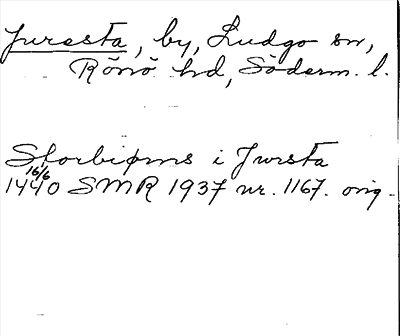 Juresta, by, Ludgo sn,
Rönö hd, Söderm. l.
Storbiørns i Jursta
1440 16/6 SMR 1937 nr. 1167. orig.